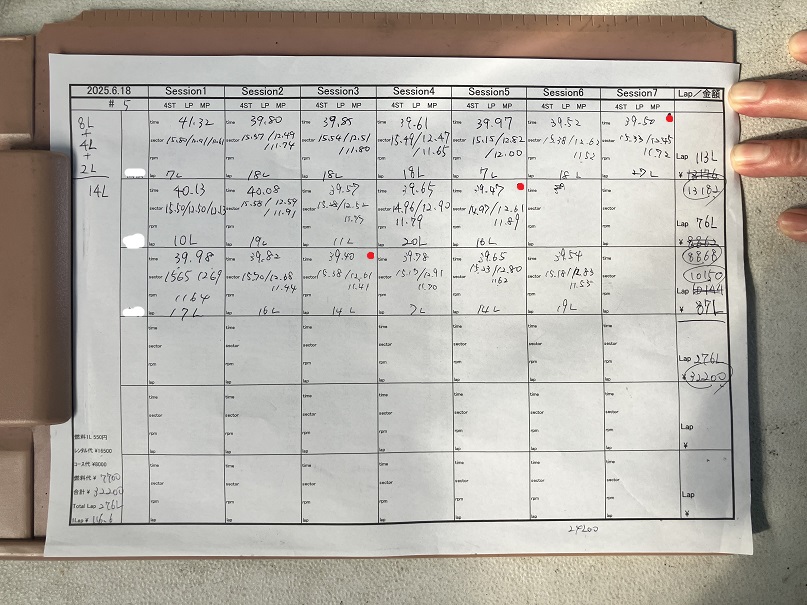 2025.6.18 Session1 Session2 Session3 Session4 Session5 Session6 Session7 Lap／金額
# 5 4ST LP MP 4ST LP MP 4ST LP MP 4ST LP MP 4ST LP MP 4ST LP MP 4ST LP MP
8L
+
4L
+
2L
14L
time 41.32 time 39.80 time 39.85 time 39.61 time 39.97 time 39.52 time 39.50
sector sector 15.37/12.49 sector 15.54/12.51 sector 15.49/12.47 sector 15.15/12.82 sector 15.38/12.62 sector 15.33/12.45
11.74 11.80 11.65 /12.00 11.52 11.72
rpm rpm rpm rpm rpm rpm rpm
Lap 113L
lap 7L lap 18L lap 18L lap 18L lap 7L lap 18L lap 27L
¥
13182
time 40.13 time 40.08 time 39.57 time 39.65 time 39.47 time time
sector 15.50/12.50/12.13 sector 15.58/12.59 sector sector 14.96/12.90 sector 14.97/12.61 sector sector
11.91 11.79 11.79 11.89
rpm rpm rpm rpm rpm rpm rpm
Lap 76L
lap 10L lap 19L lap 11L lap 20L lap 16L lap lap
¥ 8862
8868
time 39.98 time 39.82 time 39.40 time 39.78 time 39.65 time 39.54 time
sector 1565 1269 sector 15.50/12.68 sector 15.58/12.61 sector 15.17/12.91 sector 15.23/12.80 sector 15.18/12.83 sector
1164 11.44 11.41 11.70 1162 11.53
rpm rpm rpm rpm rpm rpm rpm
10150
Lap 10144
lap 17L lap 16L lap 14L lap 7L lap 14L lap 19L lap
¥ 87L
time time time time time time time
sector sector sector sector sector sector sector
rpm rpm rpm rpm rpm rpm rpm
Lap 276L
lap lap lap lap lap lap lap
¥ 32200
time time time time time time time
sector sector sector sector sector sector sector
rpm rpm rpm rpm rpm rpm rpm
Lap
lap lap lap lap lap lap lap
¥
time time time time time time time
sector sector sector sector sector sector sector
rpm rpm rpm rpm rpm rpm rpm
Lap
lap lap lap lap lap lap lap
¥
燃料1L 550円
レンタル代 ¥16500
コース代 ¥8000
燃料代 ¥ 7700
合計 ¥ 32200
Total Lap 276L
1Lap ¥ 116.6
24200